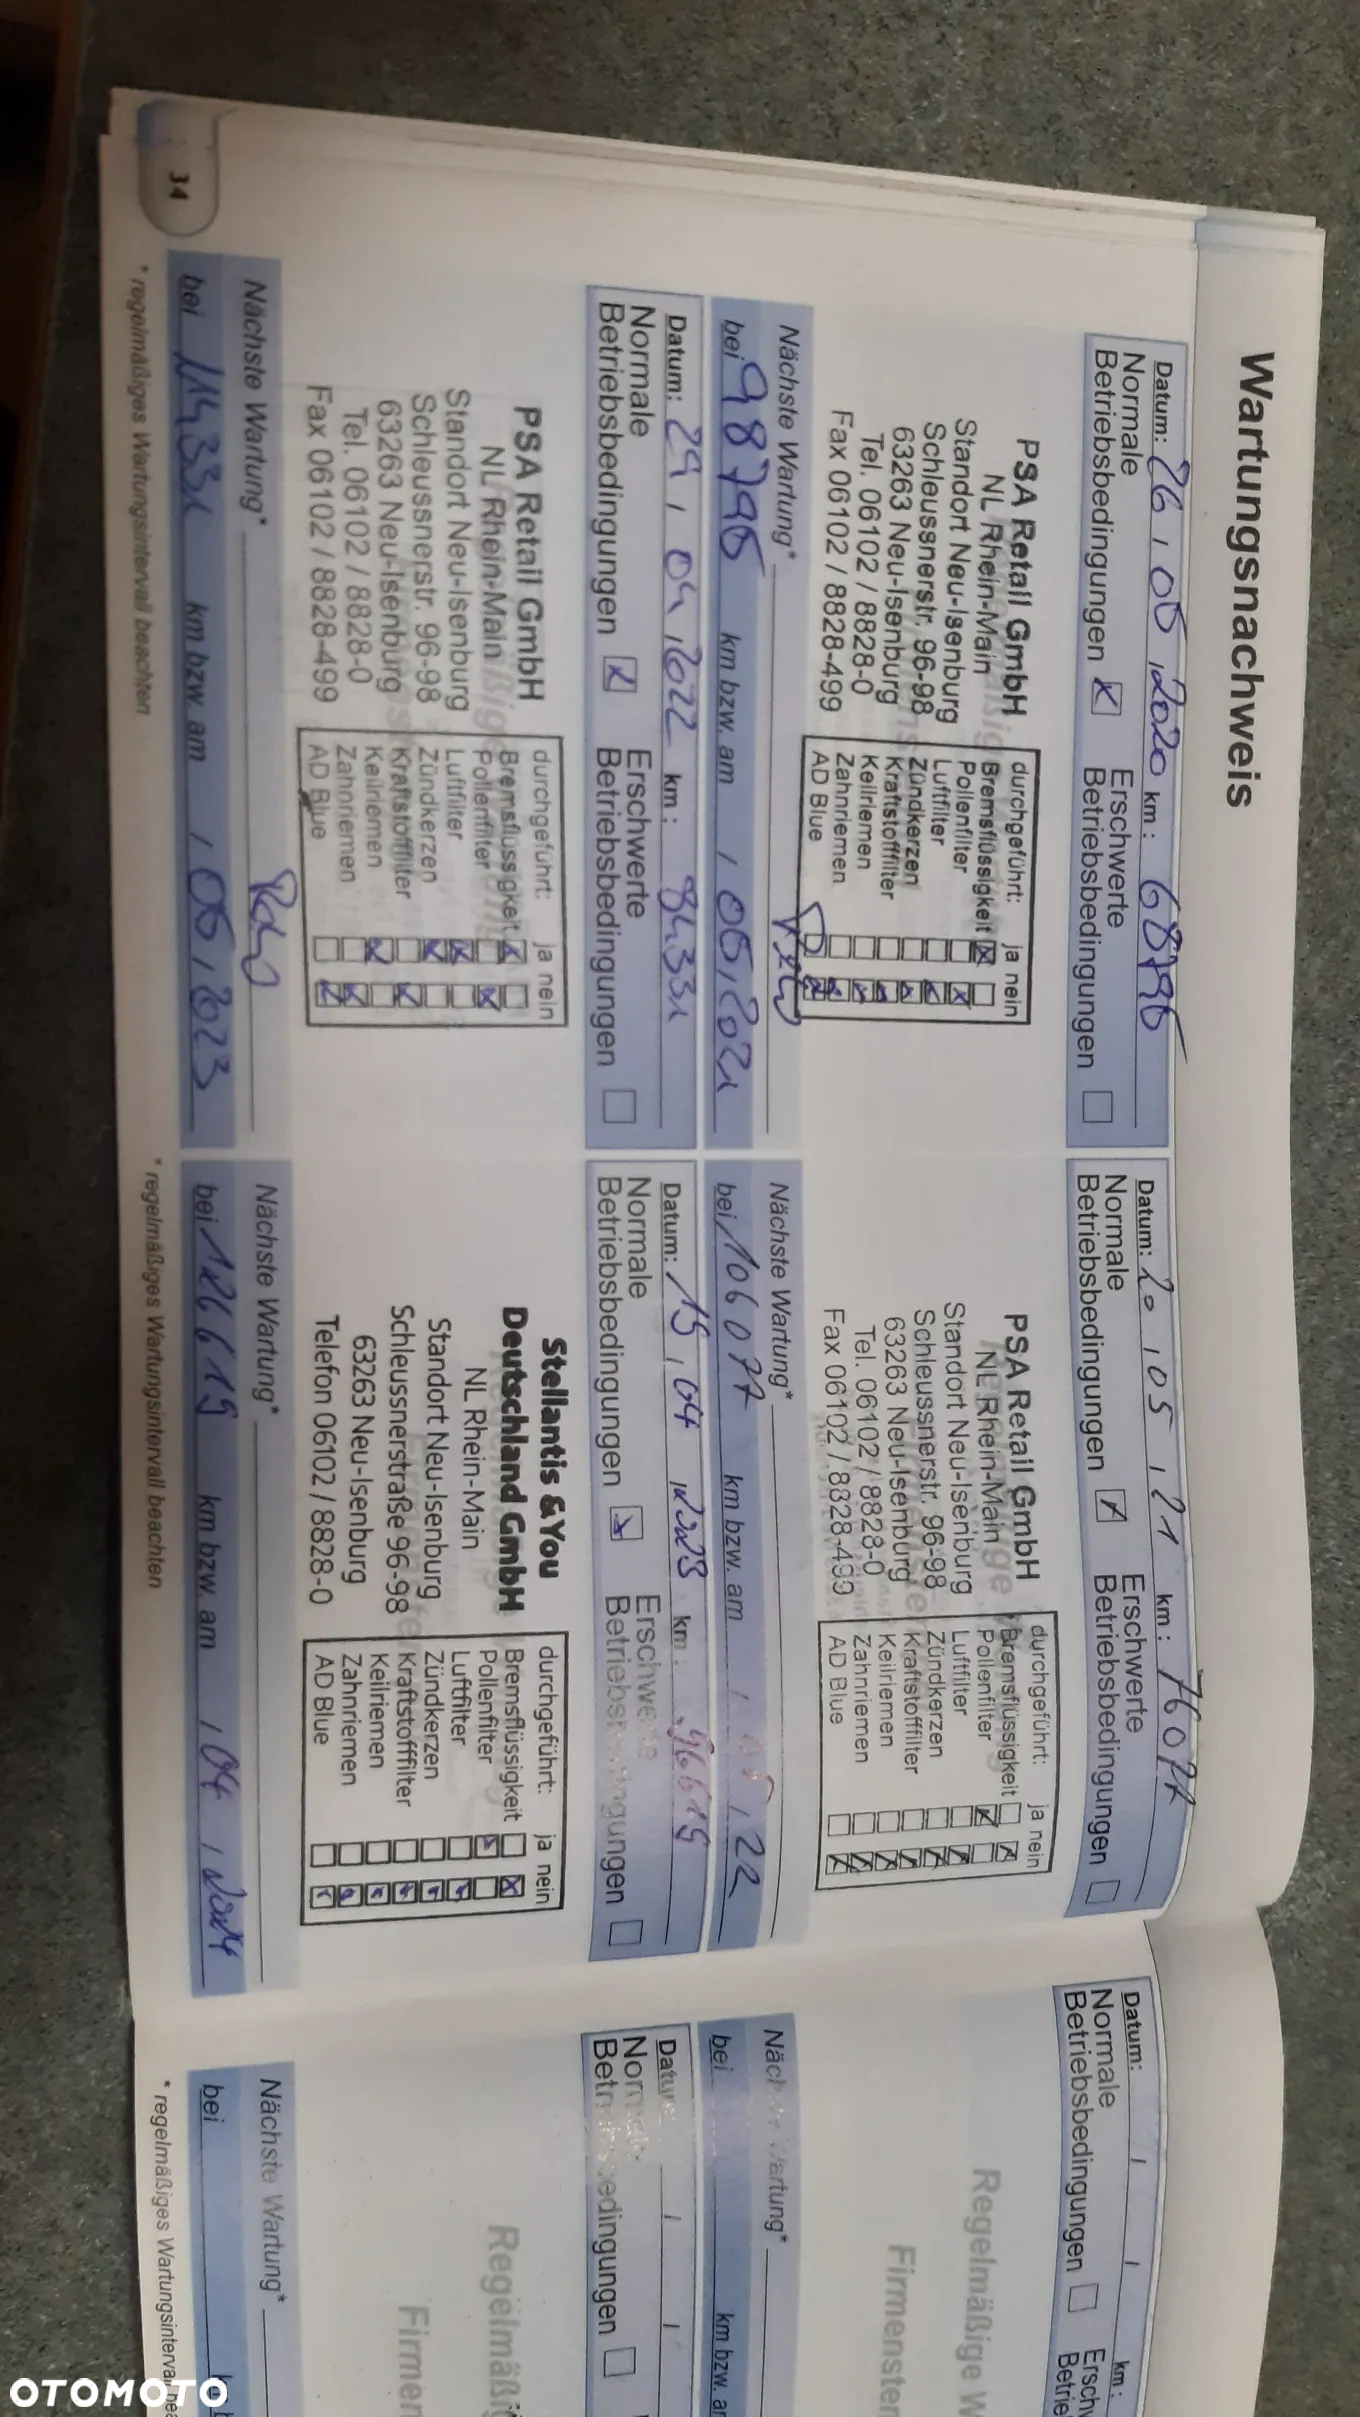 Wartungsnachweis
Datum: 26 / 05 / 2020 km: 68796
Normale
Betriebsbedingungen
Erschwerte
Betriebsbedingungen
PSA Retail GmbH
NL Rhein-Main
Standort Neu-Isenburg
Schleussnerstr. 96-98
63263 Neu-Isenburg
Tel. 06102 / 8828-0
Fax 06102 / 8828-499
durchgeführt: ja nein
Bremsflüssigkeit
Pollenfilter
Luftfilter
Zündkerzen
Kraftstofffilter
Keilriemen
Zahnriemen
AD Blue
Nächste Wartung*
bei 98796 km bzw. am / 05 / 2021
Datum: 20 / 05 / 21 km: 76077
Normale
Betriebsbedingungen
Erschwerte
Betriebsbedingungen
PSA Retail GmbH
NL Rhein-Main
Standort Neu-Isenburg
Schleussnerstr. 96-98
63263 Neu-Isenburg
Tel. 06102 / 8828-0
Fax 06102 / 8828-499
durchgeführt: ja nein
Bremsflüssigkeit
Pollenfilter
Luftfilter
Zündkerzen
Kraftstofffilter
Keilriemen
Zahnriemen
AD Blue
Nächste Wartung*
bei 106077 km bzw. am / 05 / 22
Datum: 29 / 04 / 2022 km: 84331
Normale
Betriebsbedingungen
Erschwerte
Betriebsbedingungen
PSA Retail GmbH
NL Rhein-Main
Standort Neu-Isenburg
Schleussnerstr. 96-98
63263 Neu-Isenburg
Tel. 06102 / 8828-0
Fax 06102 / 8828-499
durchgeführt: ja nein
Bremsflüssigkeit
Pollenfilter
Luftfilter
Zündkerzen
Kraftstofffilter
Keilriemen
Zahnriemen
AD Blue
Nächste Wartung*
bei 114331 km bzw. am / 05 / 2023
* regelmäßiges Wartungsintervall beachten
34
Datum: 15 / 04 / 2023 km: 96619
Normale
Betriebsbedingungen
Erschwerte
Betriebsbedingungen
Stellantis &You
Deutschland GmbH
NL Rhein-Main
Standort Neu-Isenburg
Schleussnerstraße 96-98
63263 Neu-Isenburg
Telefon 06102 / 8828-0
durchgeführt: ja nein
Bremsflüssigkeit
Pollenfilter
Luftfilter
Zündkerzen
Kraftstofffilter
Keilriemen
Zahnriemen
AD Blue
Nächste Wartung*
bei 126619 km bzw. am / 04 / 2024
* regelmäßiges Wartungsintervall beachten
Datum: / / km:
Normale
Betriebsbedingungen
Ersch
Betrie
Regelmäßige W
Firmensten
Nächste Wartung*
bei km bzw. am
Datum: / /
Normale
Betriebsbedingungen
Regelmäßi
Firmen
Nächste Wartung*
bei
* regelmäßiges Wartungsinterval
OTOMOTO